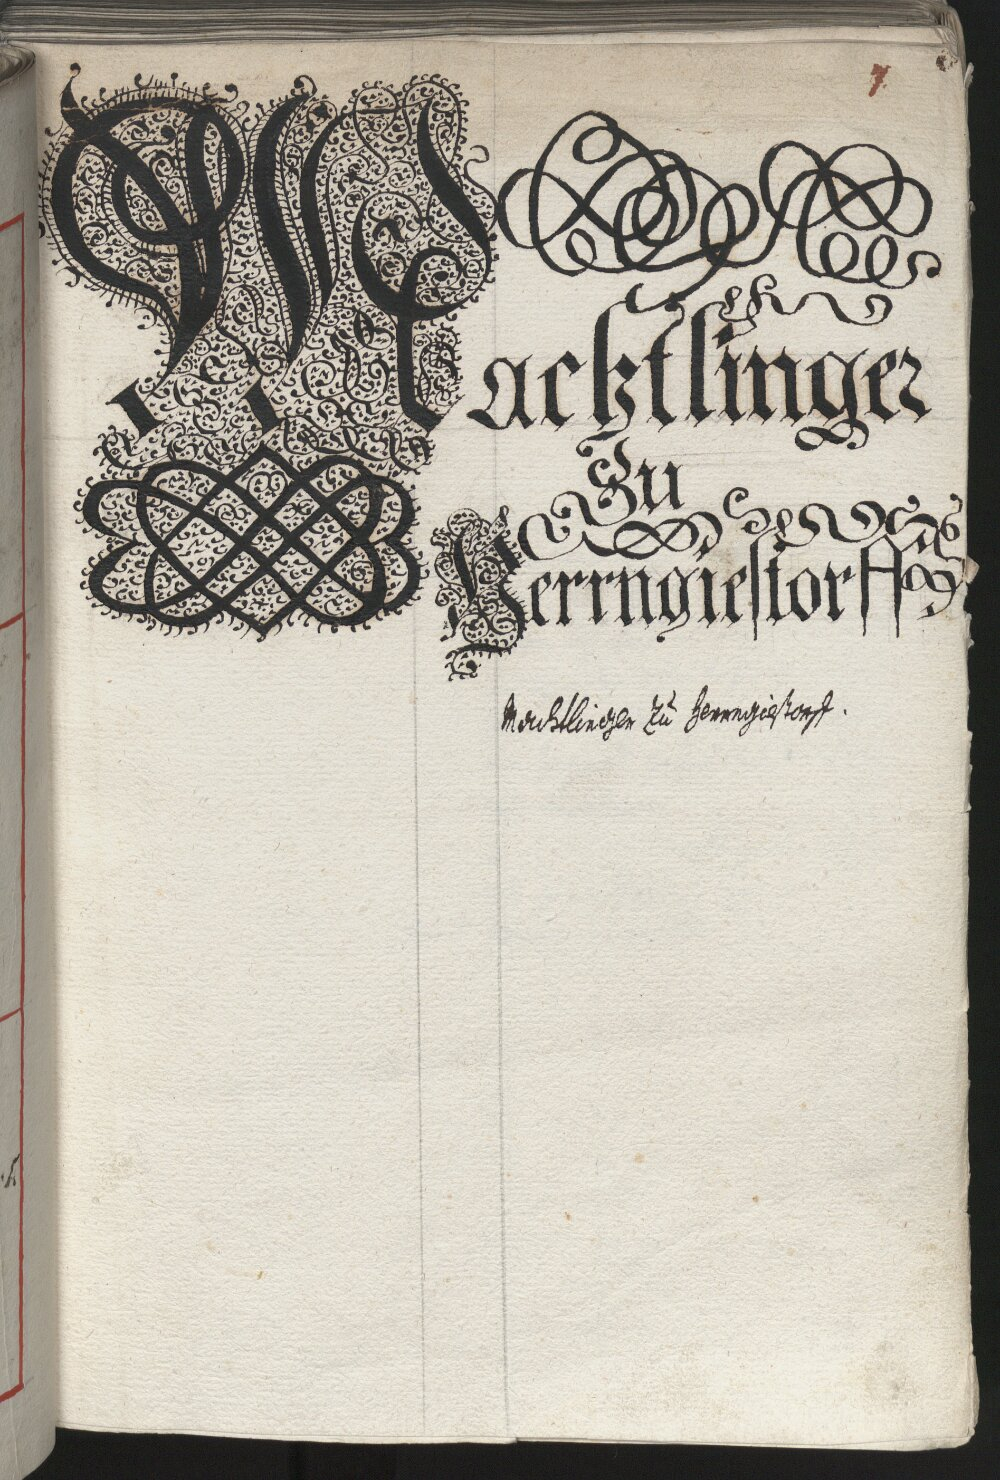 7.
Macktlinger
Zu
Herrngiestorff
Macktlinger zu Herrngiestorff.